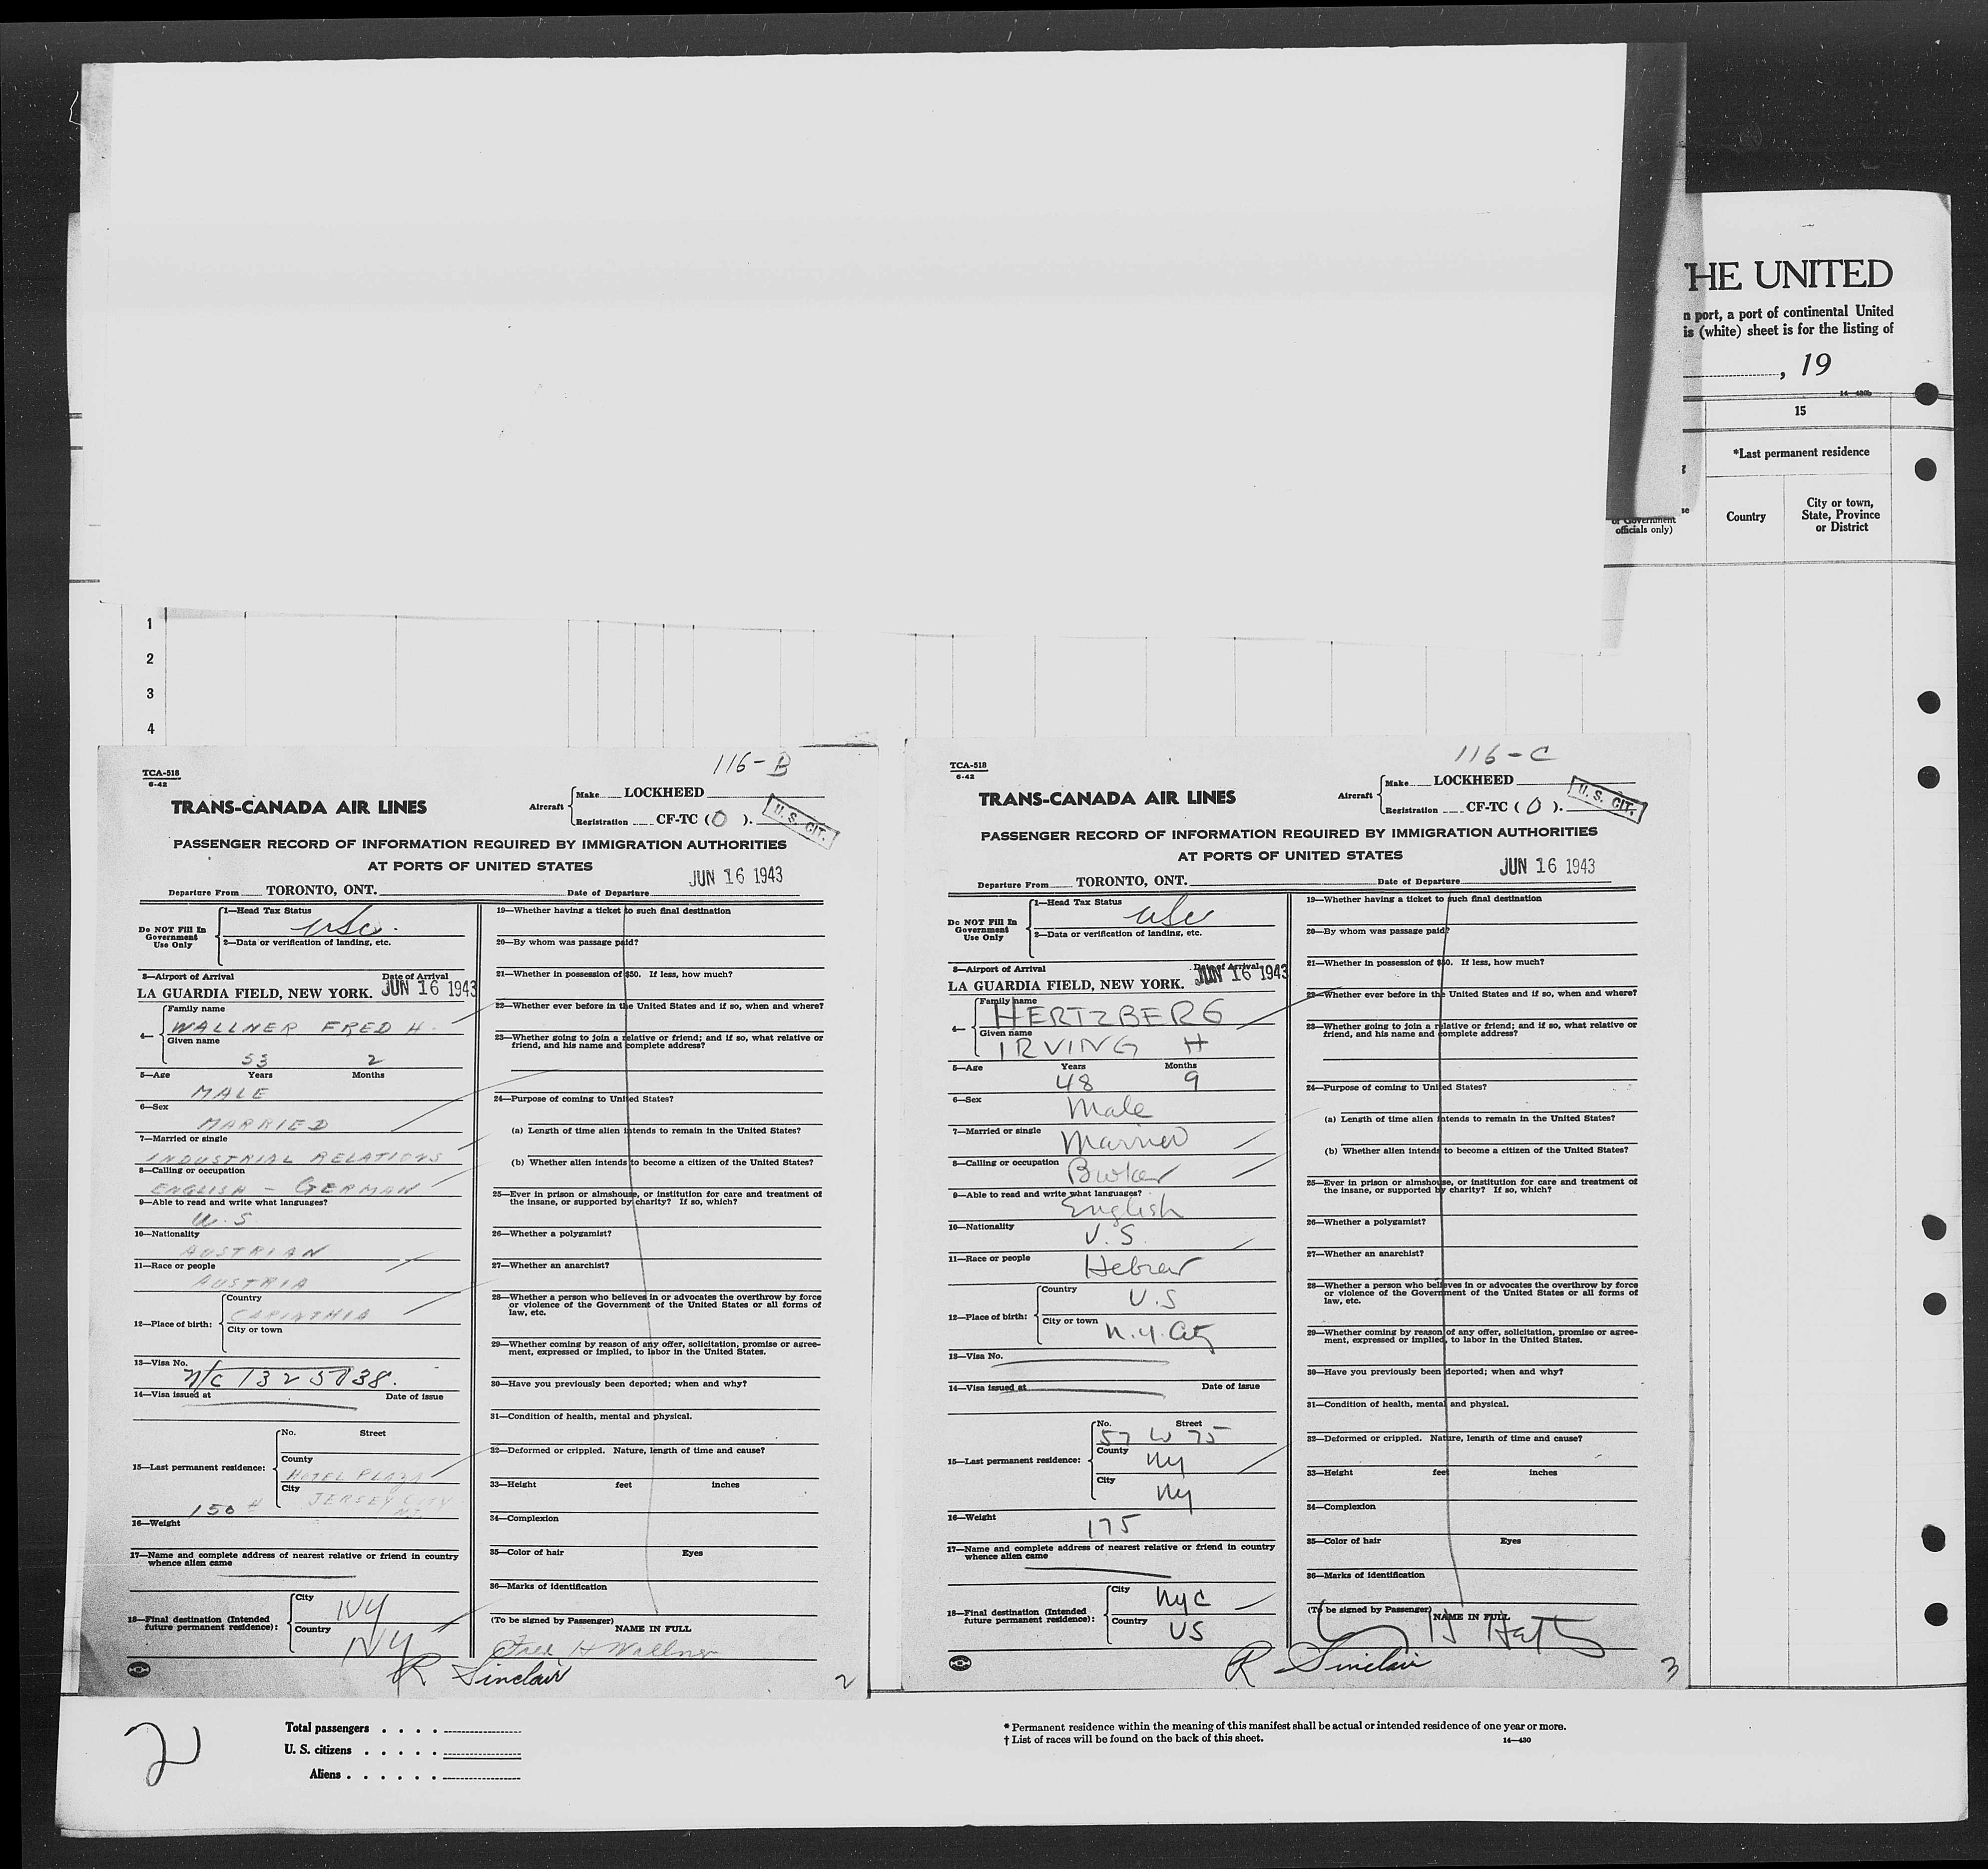 THE UNITED
n port, a port of continental United
is (white) sheet is for the listing of
, 19
14—430b
15
*Last permanent residence
or Government
officials only)
Country
City or town,
State, Province
or District
1
2
3
4
116-B
TCA-518
6-42
TRANS-CANADA AIR LINES
Aircraft
Make LOCKHEED
Registration CF-TC ( O ).
U. S. CIT.
PASSENGER RECORD OF INFORMATION REQUIRED BY IMMIGRATION AUTHORITIES
AT PORTS OF UNITED STATES
JUN 16 1943
Departure From TORONTO, ONT. Date of Departure
Do NOT Fill In
Government
Use Only
1—Head Tax Status
usc.
2—Data or verification of landing, etc.
3—Airport of Arrival Date of Arrival
LA GUARDIA FIELD, NEW YORK. JUN 16 1943
4—
Family name
WALLNER FRED H.
Given name
53 2
5—Age Years Months
MALE
6—Sex
MARRIED
7—Married or single
INDUSTRIAL RELATIONS
8—Calling or occupation
ENGLISH - GERMAN
9—Able to read and write what languages?
U.S
10—Nationality
AUSTRIAN
11—Race or people
AUSTRIA
12—Place of birth:
Country
CARINTHIA
City or town
13—Visa No.
N/C 1325038.
14—Visa issued at Date of issue
15—Last permanent residence:
No. Street
County
HOTEL PLAZA
City
JERSEY CITY
NJ
150 #
16—Weight
17—Name and complete address of nearest relative or friend in country
whence alien came
18—Final destination (Intended
future permanent residence):
City
NY
Country
NY
19—Whether having a ticket to such final destination
20—By whom was passage paid?
21—Whether in possession of $50. If less, how much?
22—Whether ever before in the United States and if so, when and where?
23—Whether going to join a relative or friend; and if so, what relative or
friend, and his name and complete address?
24—Purpose of coming to United States?
(a) Length of time alien intends to remain in the United States?
(b) Whether alien intends to become a citizen of the United States?
25—Ever in prison or almshouse, or institution for care and treatment of
the insane, or supported by charity? If so, which?
26—Whether a polygamist?
27—Whether an anarchist?
28—Whether a person who believes in or advocates the overthrow by force
or violence of the Government of the United States or all forms of
law, etc.
29—Whether coming by reason of any offer, solicitation, promise or agree-
ment, expressed or implied, to labor in the United States.
30—Have you previously been deported; when and why?
31—Condition of health, mental and physical.
32—Deformed or crippled. Nature, length of time and cause?
33—Height feet inches
34—Complexion
35—Color of hair Eyes
36—Marks of identification
(To be signed by Passenger)
NAME IN FULL
Fred H Wallner
R Sinclair
2
116-C
TCA-518
6-42
TRANS-CANADA AIR LINES
Aircraft
Make LOCKHEED
Registration CF-TC ( O ).
U. S. CIT.
PASSENGER RECORD OF INFORMATION REQUIRED BY IMMIGRATION AUTHORITIES
AT PORTS OF UNITED STATES
JUN 16 1943
Departure From TORONTO, ONT. Date of Departure
Do NOT Fill In
Government
Use Only
1—Head Tax Status
usc
2—Data or verification of landing, etc.
3—Airport of Arrival Date of Arrival
LA GUARDIA FIELD, NEW YORK. JUN 16 1943
4—
Family name
HERTZBERG
Given name
IRVING H
5—Age Years Months
48 9
6—Sex
Male
7—Married or single
Married
8—Calling or occupation
Broker
9—Able to read and write what languages?
English
10—Nationality
U.S.
11—Race or people
Hebrew
12—Place of birth:
Country
U.S
City or town
N.Y. City
13—Visa No.
14—Visa issued at Date of issue
15—Last permanent residence:
No. Street
57 W 75
County
NY
City
NY
16—Weight
175
17—Name and complete address of nearest relative or friend in country
whence alien came
18—Final destination (Intended
future permanent residence):
City
NYC
Country
US
19—Whether having a ticket to such final destination
20—By whom was passage paid?
21—Whether in possession of $50. If less, how much?
22—Whether ever before in the United States and if so, when and where?
23—Whether going to join a relative or friend; and if so, what relative or
friend, and his name and complete address?
24—Purpose of coming to United States?
(a) Length of time alien intends to remain in the United States?
(b) Whether alien intends to become a citizen of the United States?
25—Ever in prison or almshouse, or institution for care and treatment of
the insane, or supported by charity? If so, which?
26—Whether a polygamist?
27—Whether an anarchist?
28—Whether a person who believes in or advocates the overthrow by force
or violence of the Government of the United States or all forms of
law, etc.
29—Whether coming by reason of any offer, solicitation, promise or agree-
ment, expressed or implied, to labor in the United States.
30—Have you previously been deported; when and why?
31—Condition of health, mental and physical.
32—Deformed or crippled. Nature, length of time and cause?
33—Height feet inches
34—Complexion
35—Color of hair Eyes
36—Marks of identification
(To be signed by Passenger)
NAME IN FULL
R Sinclair
3
2
Total passengers . . . .
U. S. citizens . . . . .
Aliens . . . . . .
* Permanent residence within the meaning of this manifest shall be actual or intended residence of one year or more.
† List of races will be found on the back of this sheet.
14—430